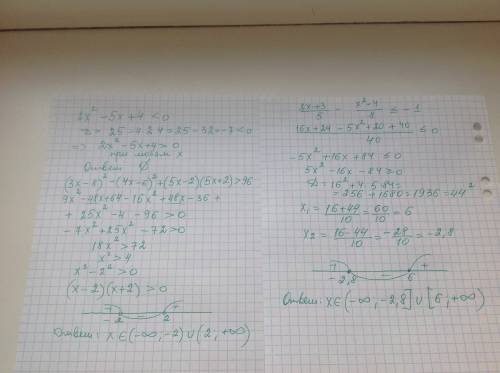 2x² -5x+4 <0
D= 25-4·2·4=25-32=-7<0
=> 2x²-5x+4>0
при любом x
Ответ: ∅
(3x-8)²-(4x-6)²+(5x-2)(5x+2)>96
9x²-48x+64-16x²+48x-36+
+ 25x²-4 -96 >0
-7x²+25x² -72>0
18x²>72
x²>4
x²-2²>0
(x-2)(x+2)>0
+ - +
-2 2
Ответ: x∈(-∞,-2)∪(2;+∞)
(2x+3)/5 - (x²-4)/8 ≤ -1
(16x+24-5x²+20+40)/40 ≤0
-5x²+16x+84≤0
5x²-16x-84≥0
D=16²+4·5·84=
=256+1680=1936=44²
x₁=(16+44)/10=60/10=6
x₂=(16-44)/10=-28/10=-2,8
+ - +
-2,8 6
Ответ: x∈(-∞,-2,8]∪[6;+∞)